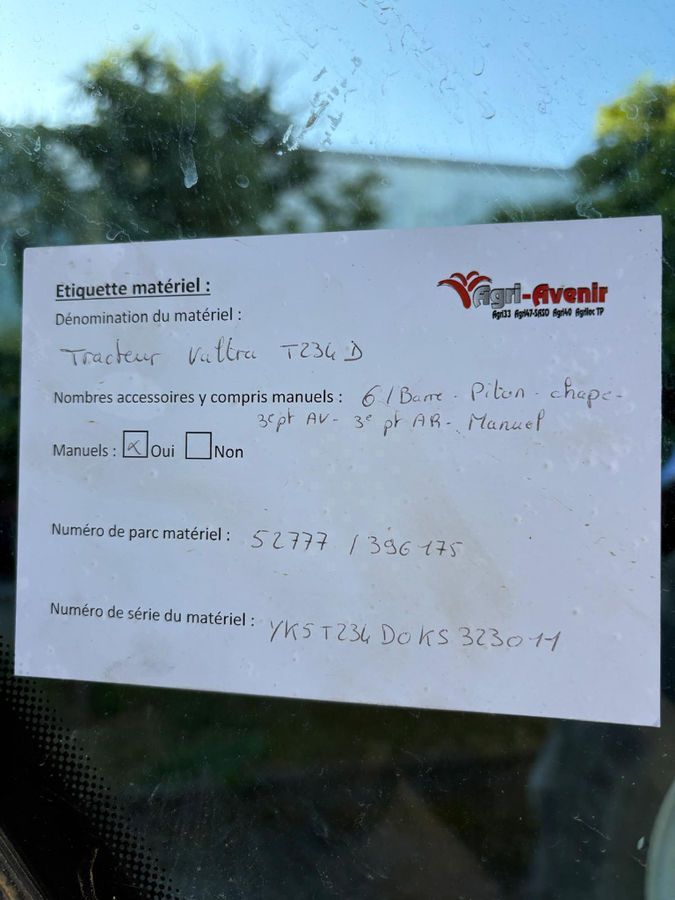 Etiquette matériel :
Agri-Avenir
Agri33 Agri47-SASO Agri40 Agriloc TP
Dénomination du matériel :
Tracteur Valtra T234 D
Nombres accessoires y compris manuels : 6 / Barre - Piton - chape -
3e pt AV - 3e pt AR - Manuel
Manuels : x Oui Non
Numéro de parc matériel : 52777 / 396175
Numéro de série du matériel : YK5T234D0KS323011